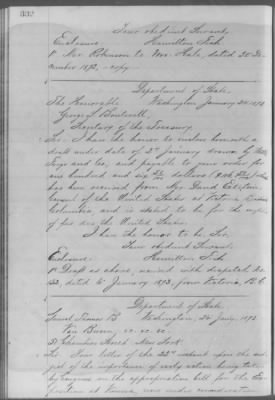 332
Your obedient Servant,
Enclosure. Hamilton Fish
1 Mr. Robinson to Mr. Hale, dated 20 De-
cember 1872,-copy.
Department of State
The Honorable Washington January 24, 1873
George S. Boutwell,
Secretary of the Treasury.
Sir: I have the honor to enclose herewith a
draft under date of 2d January drawn by Wells
Fargo and Co; and payable to your order for
one hundred and six dollars
has been received from Mr. David Eckstein
consul of the United States at Victoria,
Columbia, and is stated, to be for the
of due the United States.
I have the honor to be Sir,
Your obedient Servant.
Enclosure: Hamilton Fish
1. Draft as above, received with dispatch No.
dated 6 January 1873, from Victoria, B.C.
Department of State
Samuel Washington, 24 Jany. 1873
Van Buren, &c. &c. &c.
51 Chambers Street New York.
Sir: Your letter of the 22d instant upon the sub-
ject of the importance of early action being taken
by Congress on the appropriation bill for the Ex-
position at Vienna, was under consideration